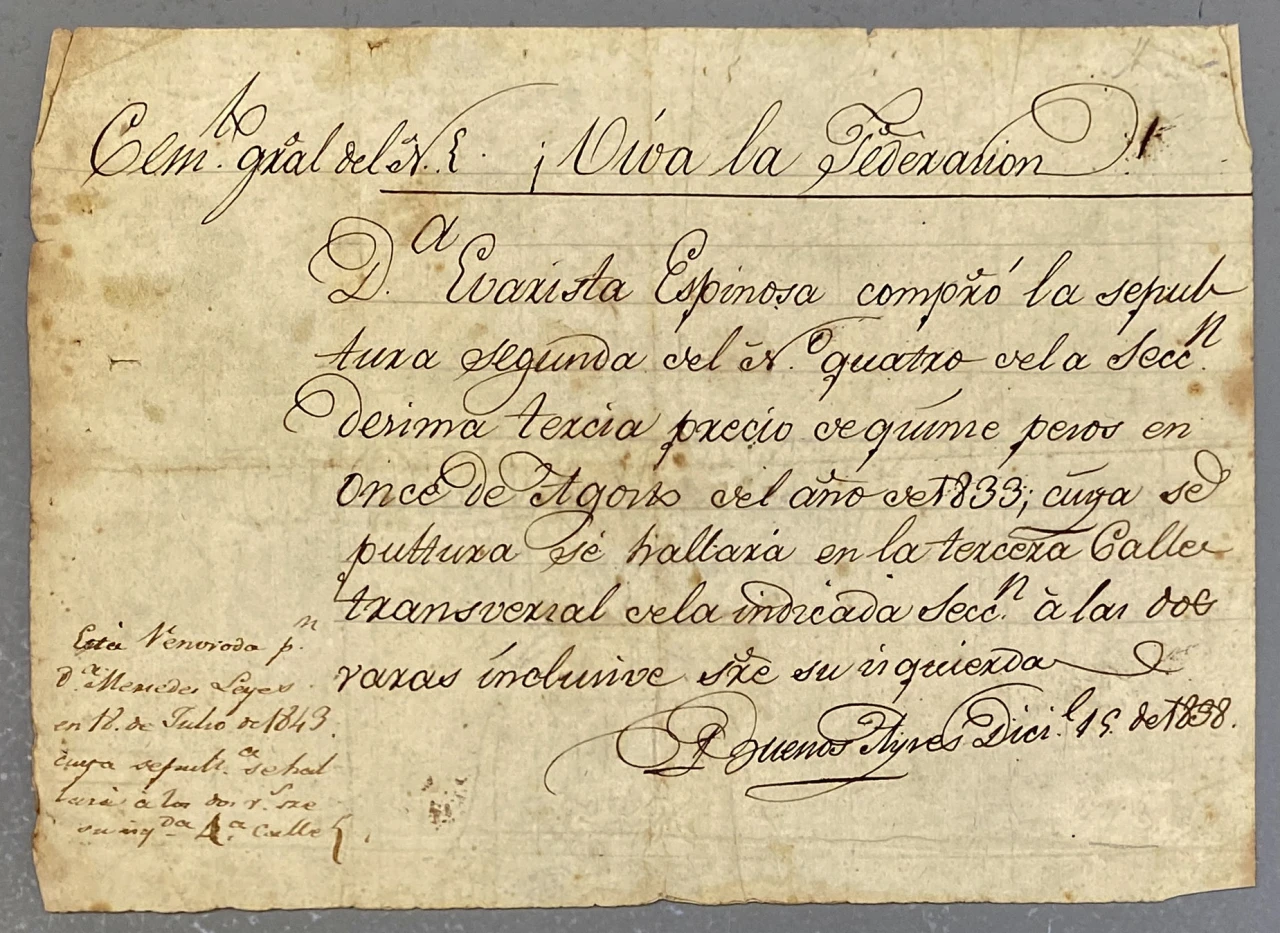 Cem.to gral del N. ¡Viva la Federacion!
D.a Evarista Espinosa compró la sepul
tura segunda del N.o quatro de la Secc.n
desima tercia precio de quinse pesos en
once de Agosto del año de 1833; cuya se
pultura se hallara en la tercera Calle
transversal de la indicada Secc.n à las dos
varas inclusive sre su isquierda
Buenos Ayres Dici.e 15. de 1838.
Està p.r
d.a Mercedes Leyes
en 18. de Julio de 1843.
cuya sepult.a se hal
lará à las dos v.s sre
su izq.da 4.a Calle